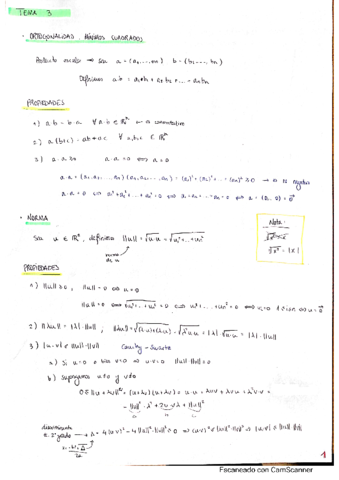 TEMA 3
· ORTOGONALIDAD. MÍNIMOS CUADRADOS
Producto escalar ⇒ sea a = (a₁, ..., aₙ) b = (b₁, ..., bₙ)
Definimos a·b = a₁b₁ + a₂b₂ + ... + aₙbₙ
PROPIEDADES
1) a·b = b·a ∀ a, b ∈ ℝⁿ conmutativo
2) a·(b+c) = ab + ac ∀ a, b, c ∈ ℝⁿ
3) a·a ≥ 0 a·a = 0 ⟺ a = 0
a·a = (a₁, ..., aₙ)·(a₁, a₂, ..., aₙ) = (a₁)² + (a₂)² + ... + (aₙ)² ≥ 0
a·a = 0 ⟺ a₁² + a₂² + ... + aₙ² = 0 ⟺ a₁ = a₂ = ... = aₙ = 0
· NORMA
Nota:
Sea u ∈ ℝⁿ, definimos ||u|| = √u·u = √u₁² + ... + uₙ²
norma de u
√x² = |x|
PROPIEDADES
1) ||u|| ≥ 0, ||u|| = 0 ⟺ u = 0
||u|| = 0 ⟺ √u₁² + ... + uₙ² = 0 ⟺ u₁² + ... + uₙ² = 0
2) ||λu|| = |λ|·||u||, ||λu|| = √(λu)·(λu) = √λ² u·u = |λ|·√u·u = |λ|·||u||
3) |u·v| ≤ ||u||·||v|| Cauchy - Schwartz
a) Si u = 0 o bien v = 0 ⇒ u·v = 0 ||u||·||v|| = 0
b) Supongamos u ≠ 0 y v ≠ 0
0 ≤ ||u + λv||² = (u + λv)·(u + λv) = u·u + λu·v + λv·u + λ² v·v =
discriminante
1
Escaneado con CamScanner